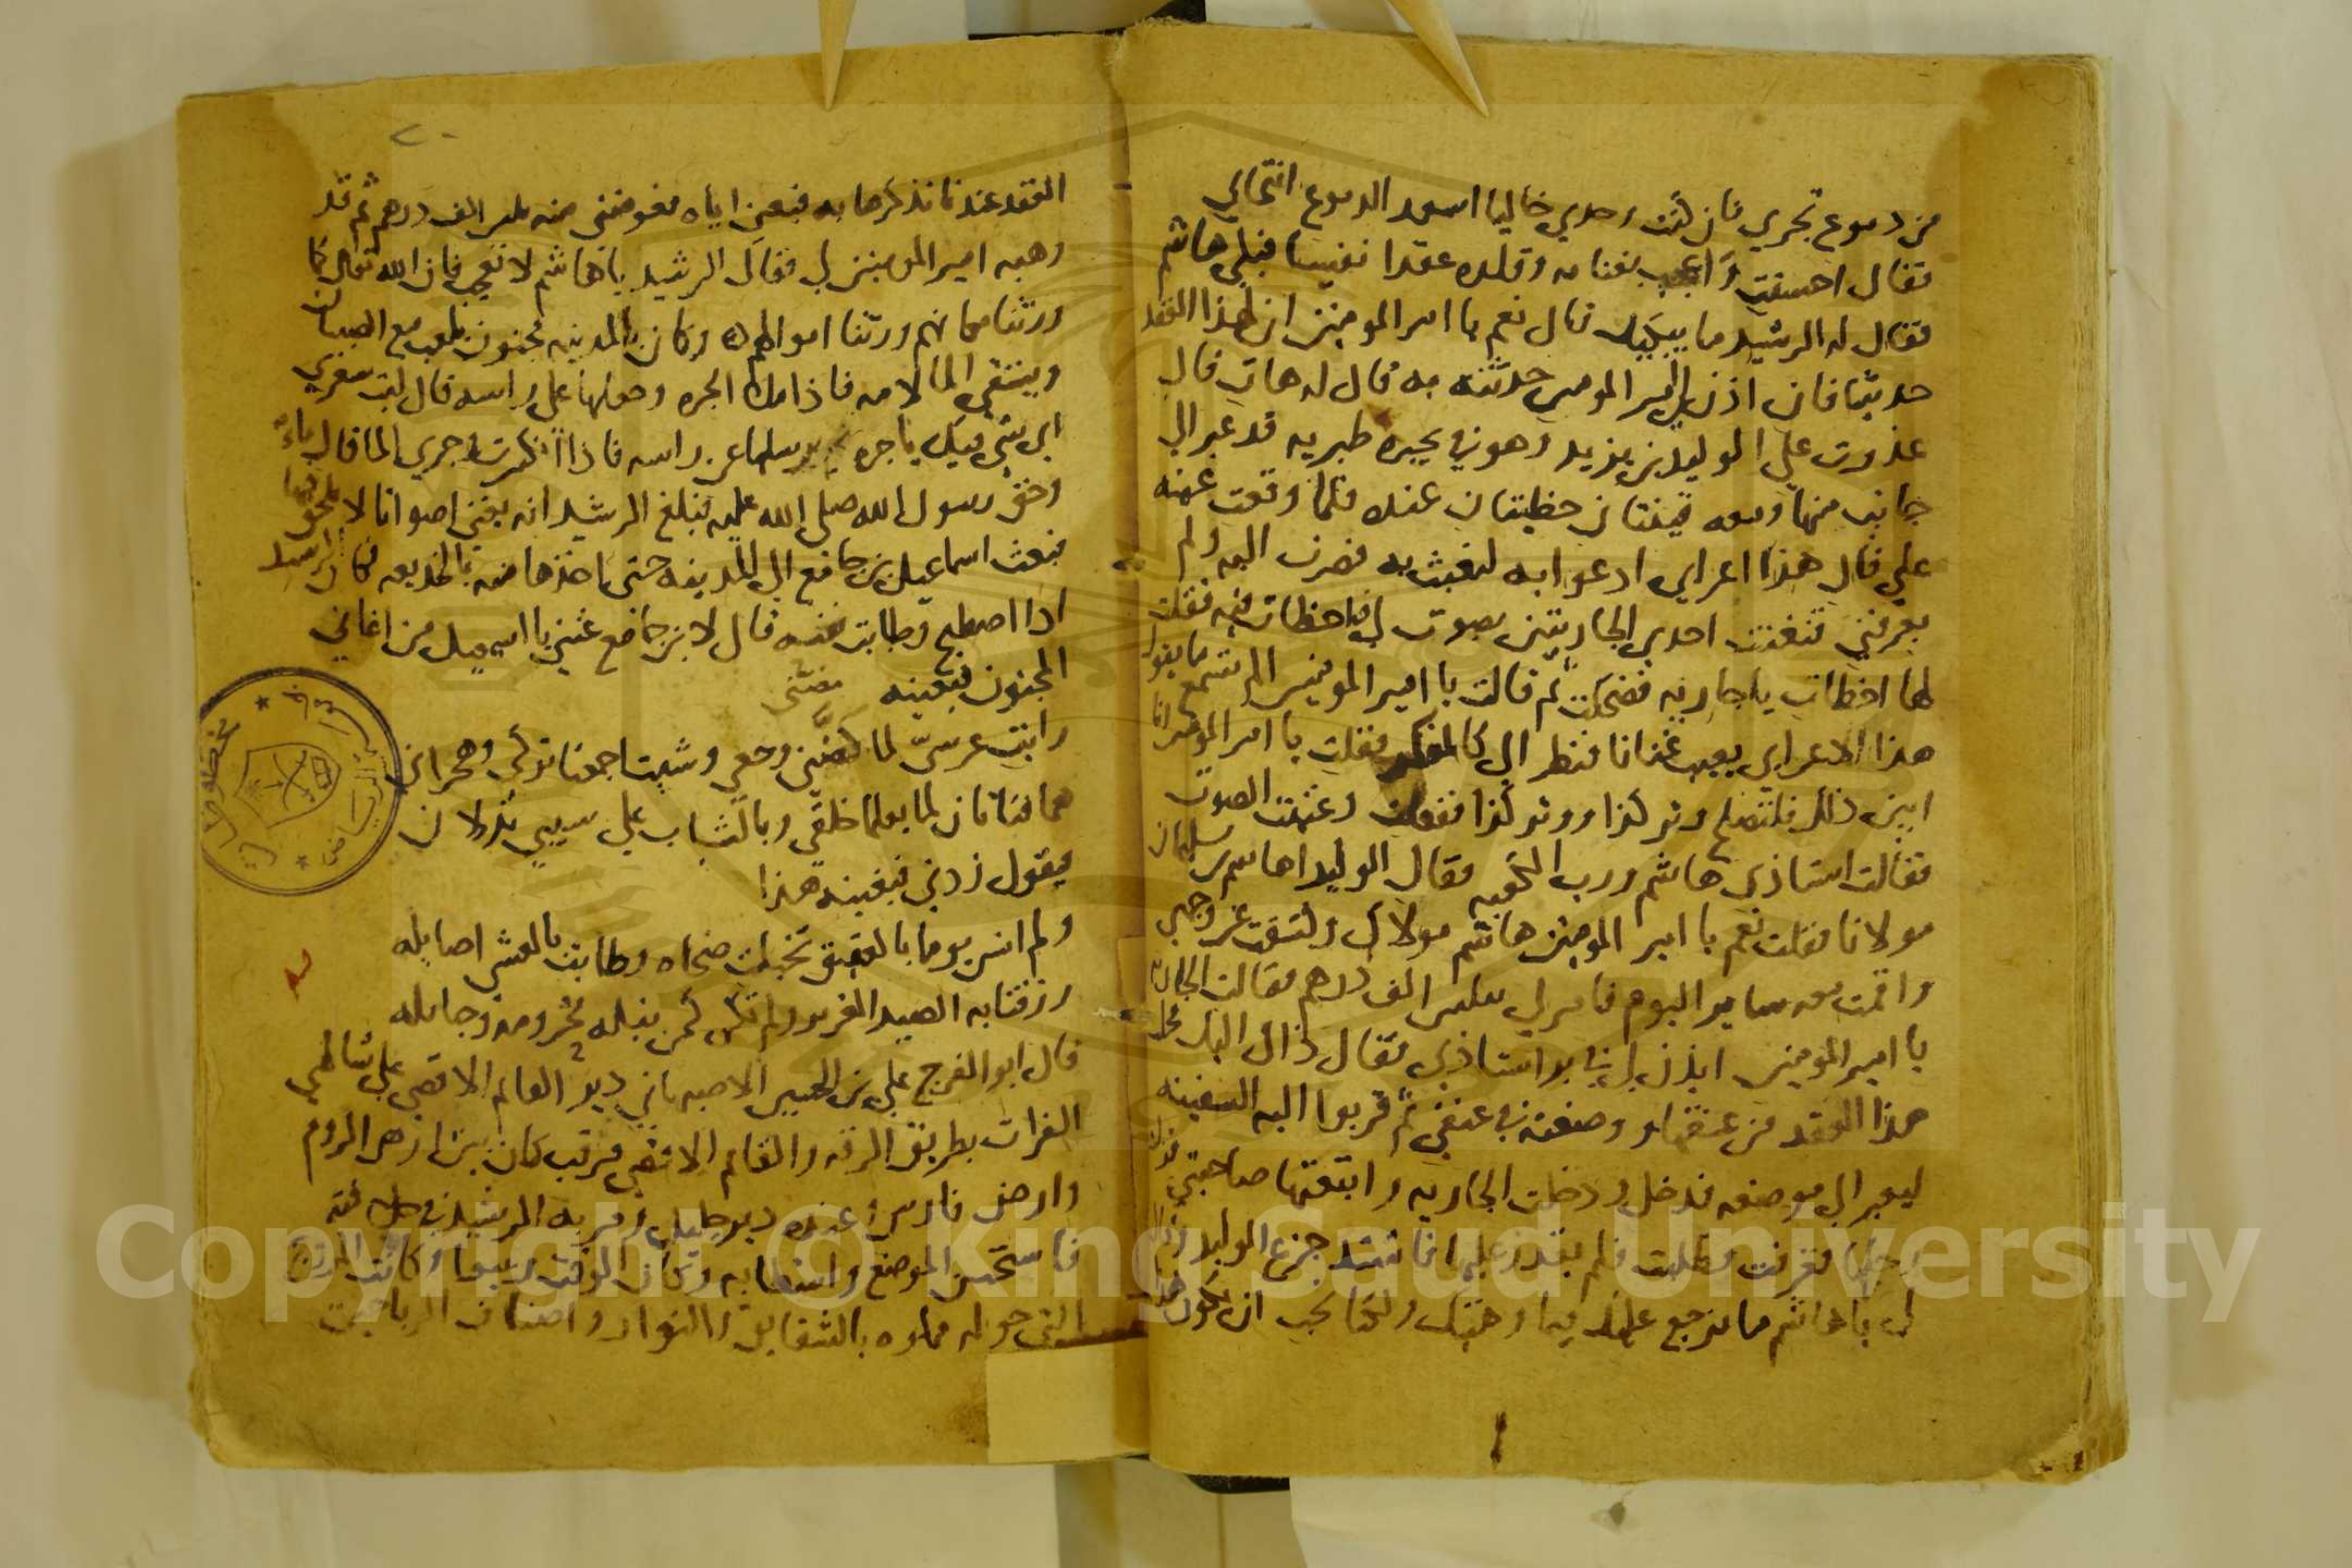 من دموع تجري فان كنت وحدي خاليا اسعد الدموع انتحابي
فقال احسنت واعجب بغنايه وقلده عقدا نفيسا فبكي هاشم
فقال له الرشيد ما يبكيك قال نعم يا امير المومنين ان لهذا العقد
حديثا فان اذن لي امير المومنين حدثته به قال له هات قال
غدوت علي الوليد بن يزيد وهو في بحيره طبريه قد عبر الي
جانب منها ومعه قينتان حظيتان عنده فلما وقعت عينه
علي قال هذا اعرابي ادعوا به لنعبث به فصرت اليه ولم
يعرفني فتغنت احدي الجاريتين بصوت لي فاخطات فيه فقلت
لها اخطات يا جاريه فضحكت ثم قالت يا امير المومنين الم تسمع ما يقول
هذا الاعرابي يعيب غنانا فنظر الي كالمنكر فقلت يا امير المومنين انا
ابين ذلك فلتصلح وتر كذا ووتر كذا ففعلت وغنت الصوت
فقالت استاذي هاشم ورب الكعبه فقال الوليد اهاشم بن سليمان
مولانا فقلت نعم يا امير المومنين هاشم مولاك وكشفت عن وجهي
واقمت معه ساير اليوم فامر لي الف درهم فقالت الجاريه
يا امير المومنين ايذن لي في بر استاذي فقال ذاك اليك فحل
هذا العقد من عنقها ووضعته في عنقي ثم قربوا اليه السفينه
ليعبر الي موضعه فدخل ودخلت الجاريه واتبعتها صاحبتي
رجلها فغرقت وطلبت فلم يقدر عليها فاشتد جزع الوليد
لي يا هاشم ما نرجع عليك فيما وهبنك ولكنا نحب ان يكون هذا
العقد عندنا نذكرها به فبعني اياه فعوضني منه الف درهم ثم قد
وهبه امير المومنين لي فقال الرشيد يا هاشم لا تعجب فان الله تعالي كما
ورثنا مكانهم ورثنا اموالهم وكان بالمدينه مجنون يلعب مع الصبيان
ويستقي الما لامه فاذا ملا الجره وحملها علي راسه قال ليت شعري
اي شي فيك يا جره ثم يرسلها عن راسه فاذا انكسرت وجري الما قال ماءً
وحق رسول الله صلي الله عليه فبلغ الرشيد انه يغني اصواتا لا يلحق فيها
فبعث اسماعيل بن جامع الي المدينه حتي ياخذها منه بالخديعه فكان الرشيد
اذا اصطبح وطابت نفسه قال لابن جامع غنني يا اسمعيل من اغاني
المجنون فيغنيه فغنني
هما فتاتان لما يعلما خلقي وبالشباب علي شيبي تدلان
فيقول زدني فيغنيه هذا
ولم انس يوما بالعقيق تخيلت ضحاه وطابت بالعشي اصايله
رزقنا به الصيد الغرير ولم نكن كمن نبله محرومه وحبايله
قال ابو الفرج علي بن الحسين الاصبهاني دير القايم الاقصي علي شاطي
الفرات بطريق الرقه والقايم الاقصي مرقب كان بين ارض الروم
وارض فارس وعنده دير جليل ومر به الرشيد في
فاستحسن الموضع واستطابه وكان الوقت ربيعا وكانت المروج
التي حوله مملوه بالشقايق والنوار واصناف الرياحين